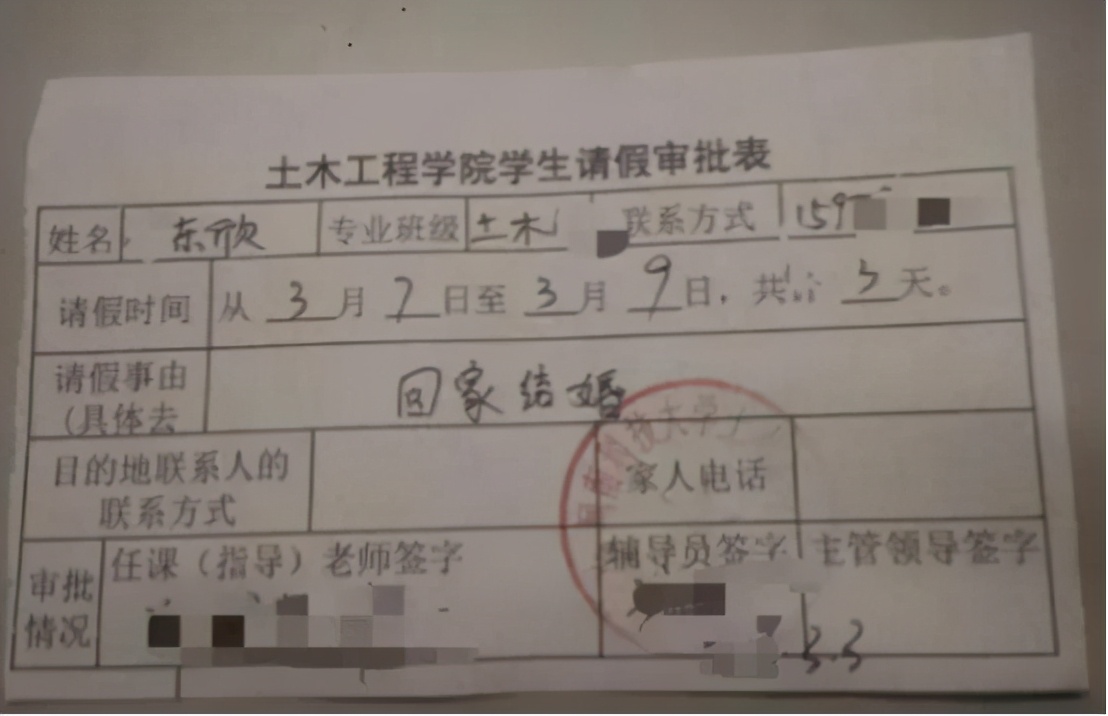 土木工程学院学生请假审批表
姓名 东欣 专业班级 土木 联系方式 159
请假时间 从 3 月 7 日至 3 月 9 日，共计 3 天。
请假事由 回家结婚
（具体去
目的地联系人的 家人电话
联系方式
审批 任课（指导）老师签字 辅导员签字 主管领导签字
情况 3.3
科技大学